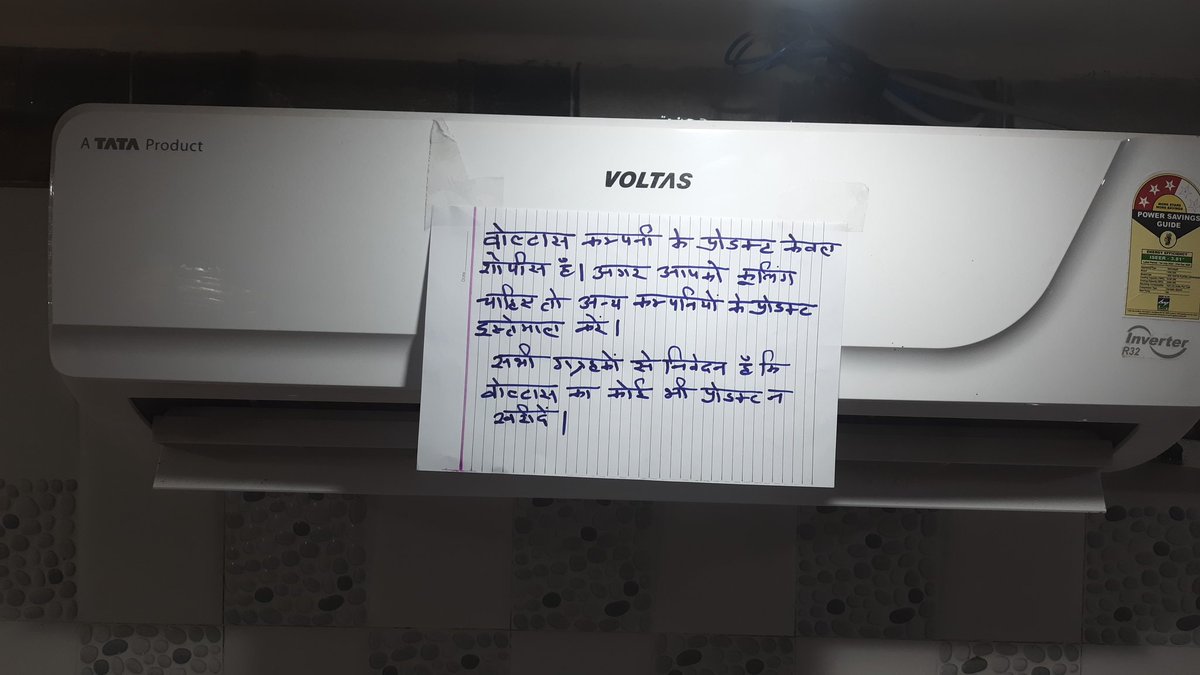 A TATA Product
VOLTAS
वोल्टास कम्पनी के प्रोडक्ट केवल
शोपीस हैं। अगर आपको कूलिंग
चाहिए तो अन्य कम्पनियों के प्रोडक्ट
इस्तेमाल करें।
सभी ग्राहकों से निवेदन है कि
वोल्टास का कोई भी प्रोडक्ट न
खरीदें।
MORE STARS
MORE SAVINGS
POWER SAVINGS
GUIDE
ENERGY EFFICIENCY
Inverter
R32